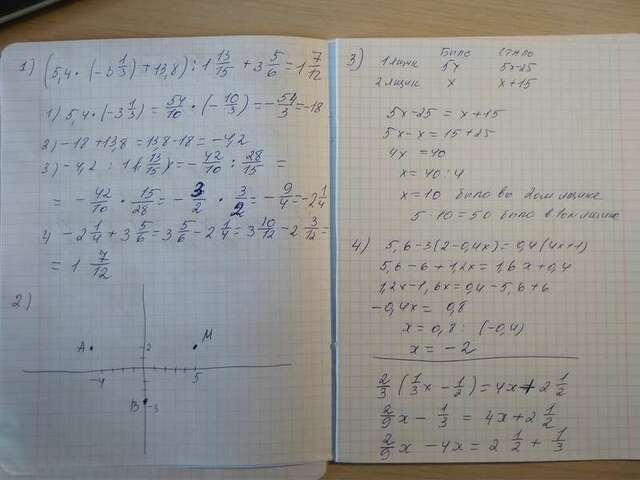 1) (5,4 · (-3 1/3) + 13,8) : 1 13/15 + 3 5/6 = 1 7/12
1) 5,4 · (-3 1/3) = 54/10 · (-10/3) = -54/3 = -18
2) -18 + 13,8 = 13,8 - 18 = -4,2
3) -4,2 : 1 13/15 = -42/10 : 28/15 =
= -42/10 · 15/28 = -3/2 · 3/2 = -9/4 = -2 1/4
4 -2 1/4 + 3 5/6 = 3 5/6 - 2 1/4 = 3 10/12 - 2 3/12 =
= 1 7/12
2)
A 2 M
-4 5
B -3
3) Было Стало
1 ящик 5x 5x-25
2 ящик x x+15
5x-25 = x+15
5x-x = 15+25
4x = 40
x = 40 : 4
x = 10 было во 2ом ящике
5 · 10 = 50 было в 1ом ящике
4) 5,6-3(2-0,4x) = 0,4(4x+1)
5,6-6+1,2x = 1,6x+0,4
1,2x-1,6x = 0,4-5,6+6
-0,4x = 0,8
x = 0,8 : (-0,4)
x = -2
2/3 (1/3 x - 1/2) = 4x + 2 1/2
2/9 x - 1/3 = 4x + 2 1/2
2/9 x - 4x = 2 1/2 + 1/3